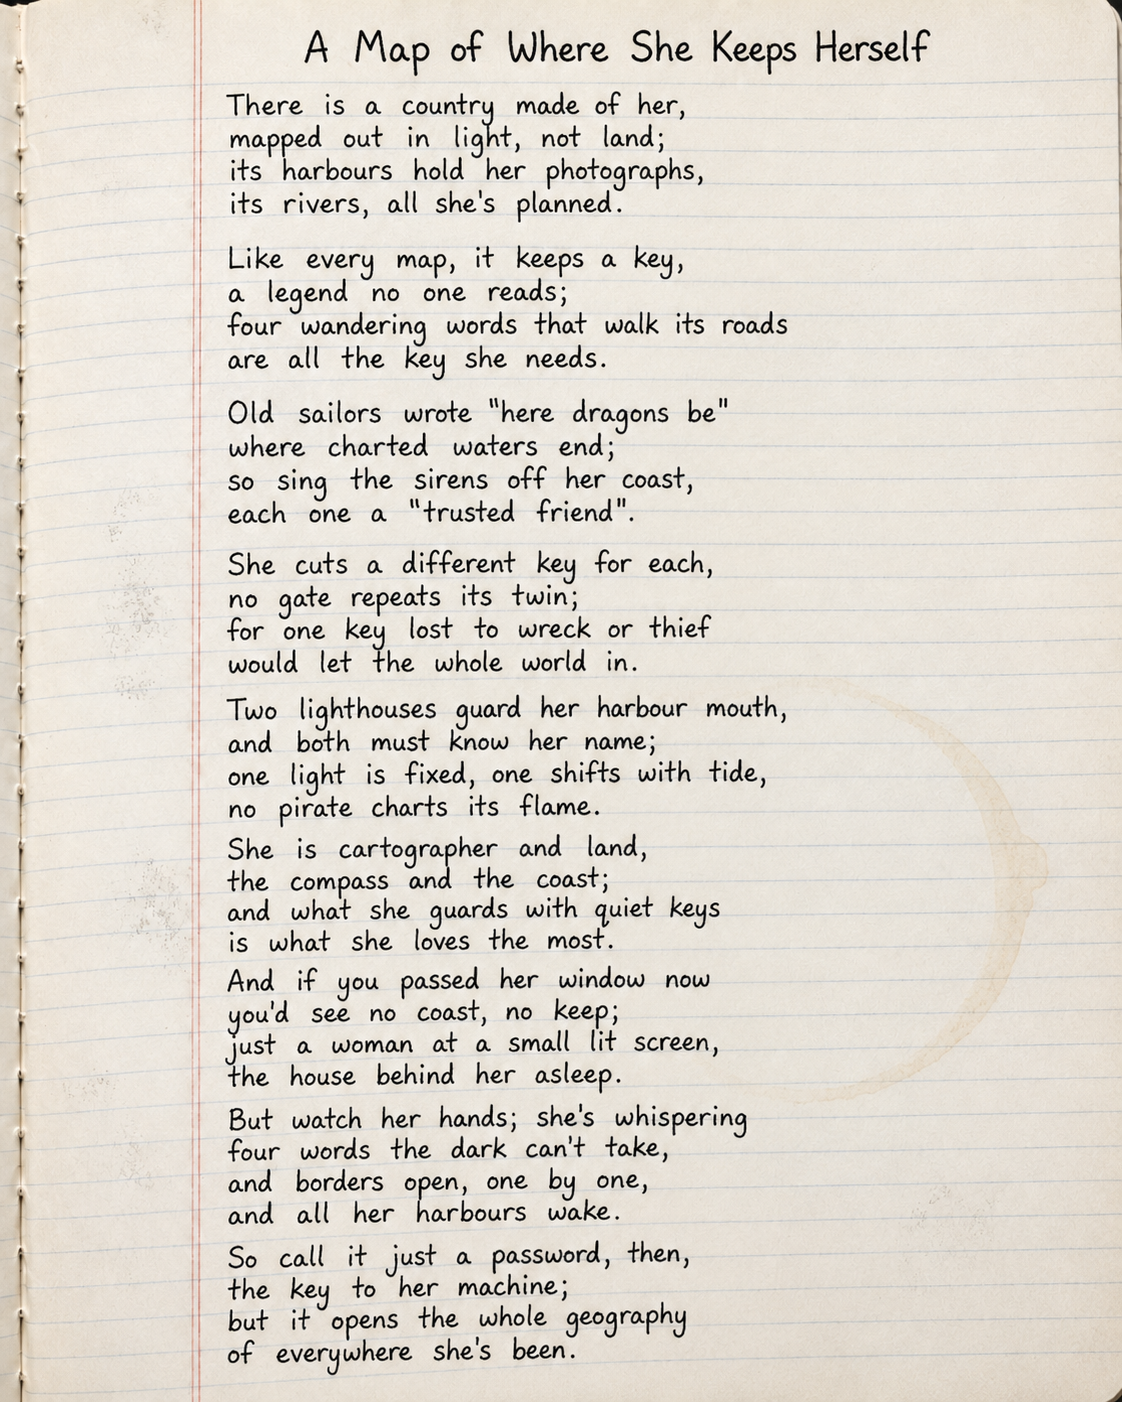 A Map of Where She Keeps Herself
There is a country made of her,
mapped out in light, not land;
its harbours hold her photographs,
its rivers, all she's planned.
Like every map, it keeps a key,
a legend no one reads;
four wandering words that walk its roads
are all the key she needs.
Old sailors wrote "here dragons be"
where charted waters end;
so sing the sirens off her coast,
each one a "trusted friend".
She cuts a different key for each,
no gate repeats its twin;
for one key lost to wreck or thief
would let the whole world in.
Two lighthouses guard her harbour mouth,
and both must know her name;
one light is fixed, one shifts with tide,
no pirate charts its flame.
She is cartographer and land,
the compass and the coast;
and what she guards with quiet keys
is what she loves the most.
And if you passed her window now
you'd see no coast, no keep;
just a woman at a small lit screen,
the house behind her asleep.
But watch her hands; she's whispering
four words the dark can't take,
and borders open, one by one,
and all her harbours wake.
So call it just a password, then,
the key to her machine;
but it opens the whole geography
of everywhere she's been.